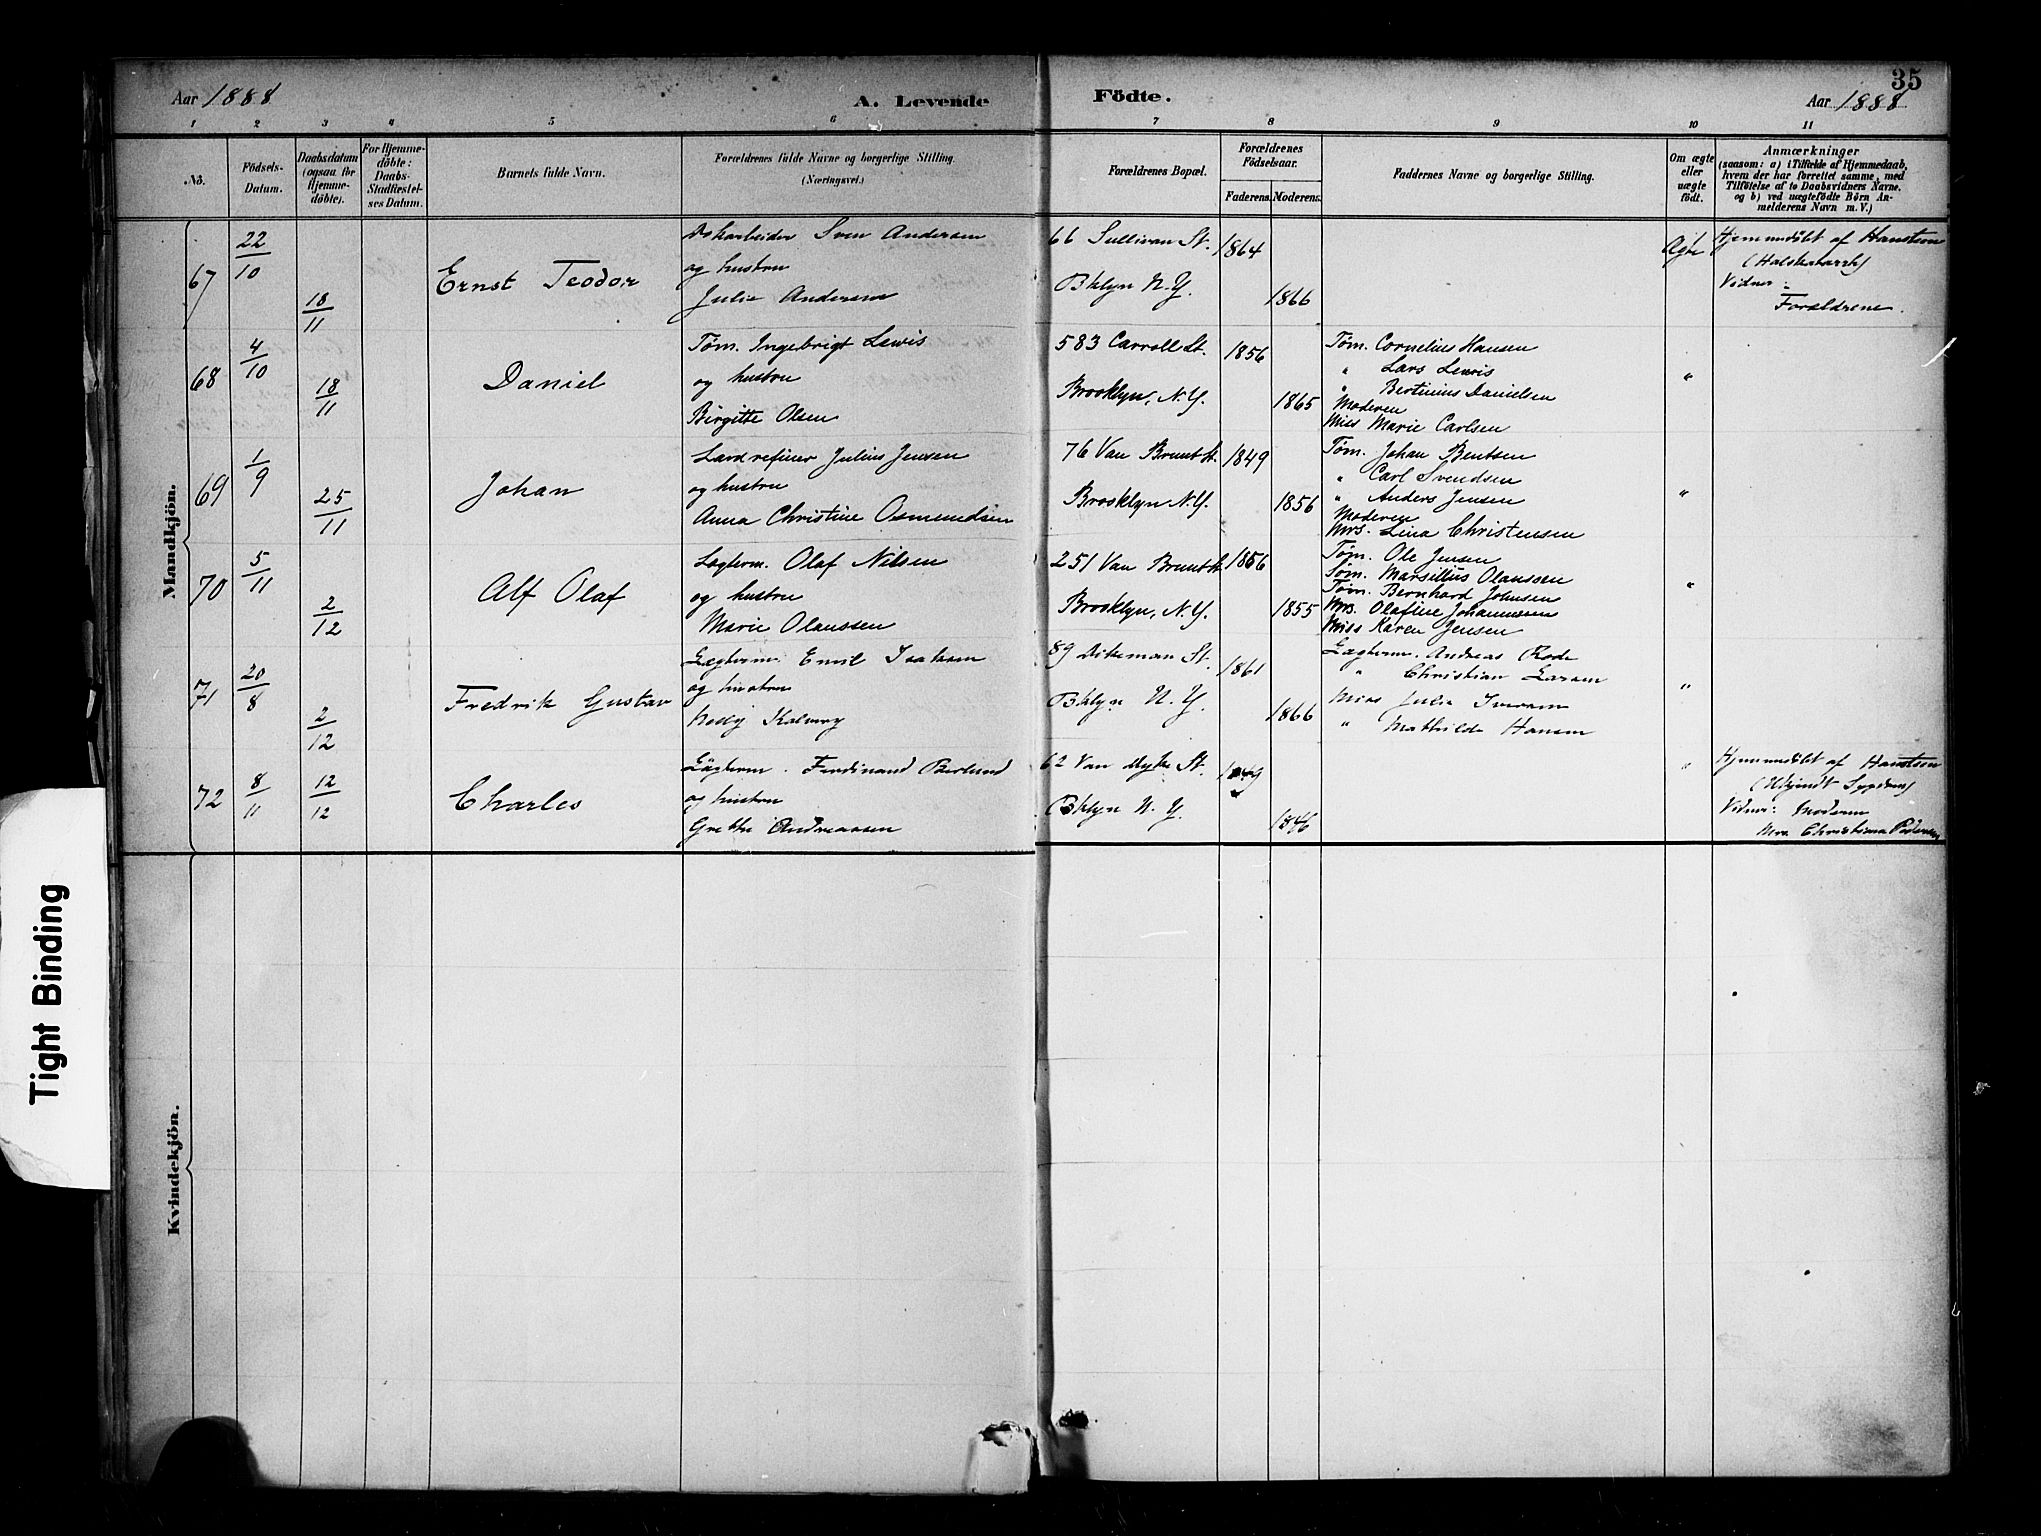 35
Aar 1888
A. Levende Födte.
Aar 1888
1 2 3 4 5 6 7 8 9 10 11
No.
Födsels-Datum.
Daabsdatum (ogsaa for Hjemme-döbte).
For Hjemme-döbte: Daabs-Stadfæstel-ses Datum.
Barnets fulde Navn.
Forældrenes fulde Navne og borgerlige Stilling.
(Næringsvei.)
Forældrenes Bopæl.
Forældrenes Födselsaar.
Faderens. Moderens.
Faddernes Navne og borgerlige Stilling.
Om ægte eller uægte født.
Anmærkninger
(saasom: a) i Tilfælde af Hjemmedaab,
hvem der har forrettet samme, med
Tilföielse af to Daabsvidners Navne.
og b) ved uægtefödte Börn An-
melderens Navn m. V.)
Mandkjön.
67
22/10
18/11
Ernst Teodor
Sven Andersen
og hustru
Julie Andersen
66 Sullivan St.
Bklyn N.Y.
1864
1866
Ægte
Hjemmedöbt af Hansteen
(Halskatarrh)
Vidner:
Forældrene.
68
4/10
18/11
Daniel
Tøm. Ingebrigt Lewis
og hustru
Birgitte Olsen
583 Carroll St.
Brooklyn, N.Y.
1856
1865
Tøm. Cornelius Hansen
" Lars Lewis
" Bertinius Danielsen
Moderen
Miss Marie Carlsen
"
69
1/9
25/11
Johan
Lard refiner Julius Jensen
og hustru
Anna Christine Osmundsen
76 Van Brunt st.
Brooklyn N.Y.
1849
1856
Tøm. Johan Bentsen
" Carl Svendsen
" Anders Jensen
Moderen
Mrs. Lina Christensen
"
70
5/11
2/12
Alf Olaf
Lægterm. Olaf Nilsen
og hustru
Marie Olaussen
251 Van Brunt st.
Brooklyn, N.Y.
1856
1855
Tøm. Ole Jensen
Tøm. Marsellius Olaussen
Tøm. Bernhard Johnsen
Mrs. Olafine Johannessen
Miss Karen Jensen
"
71
20/8
2/12
Fredrik Gustav
Lægterm. Emil Isaksen
og hustru
89 Dikeman St.
Bklyn N.Y.
1861
1866
Lægterm. Andreas Rode
" Christian Larsen
Miss Julia Iversen
" Mathilde Hansen
"
72
8/11
12/12
Charles
Lægterm. Ferdinand Berlund
og hustru
Grethe Andreassen
62 Van Dyke St.
Bklyn N.Y.
1849
1846
"
Hjemmedöbt af Hansteen
Vidner: Moderen
Mrs Christiana Pedersen
Kvindekjön.
Tight Binding